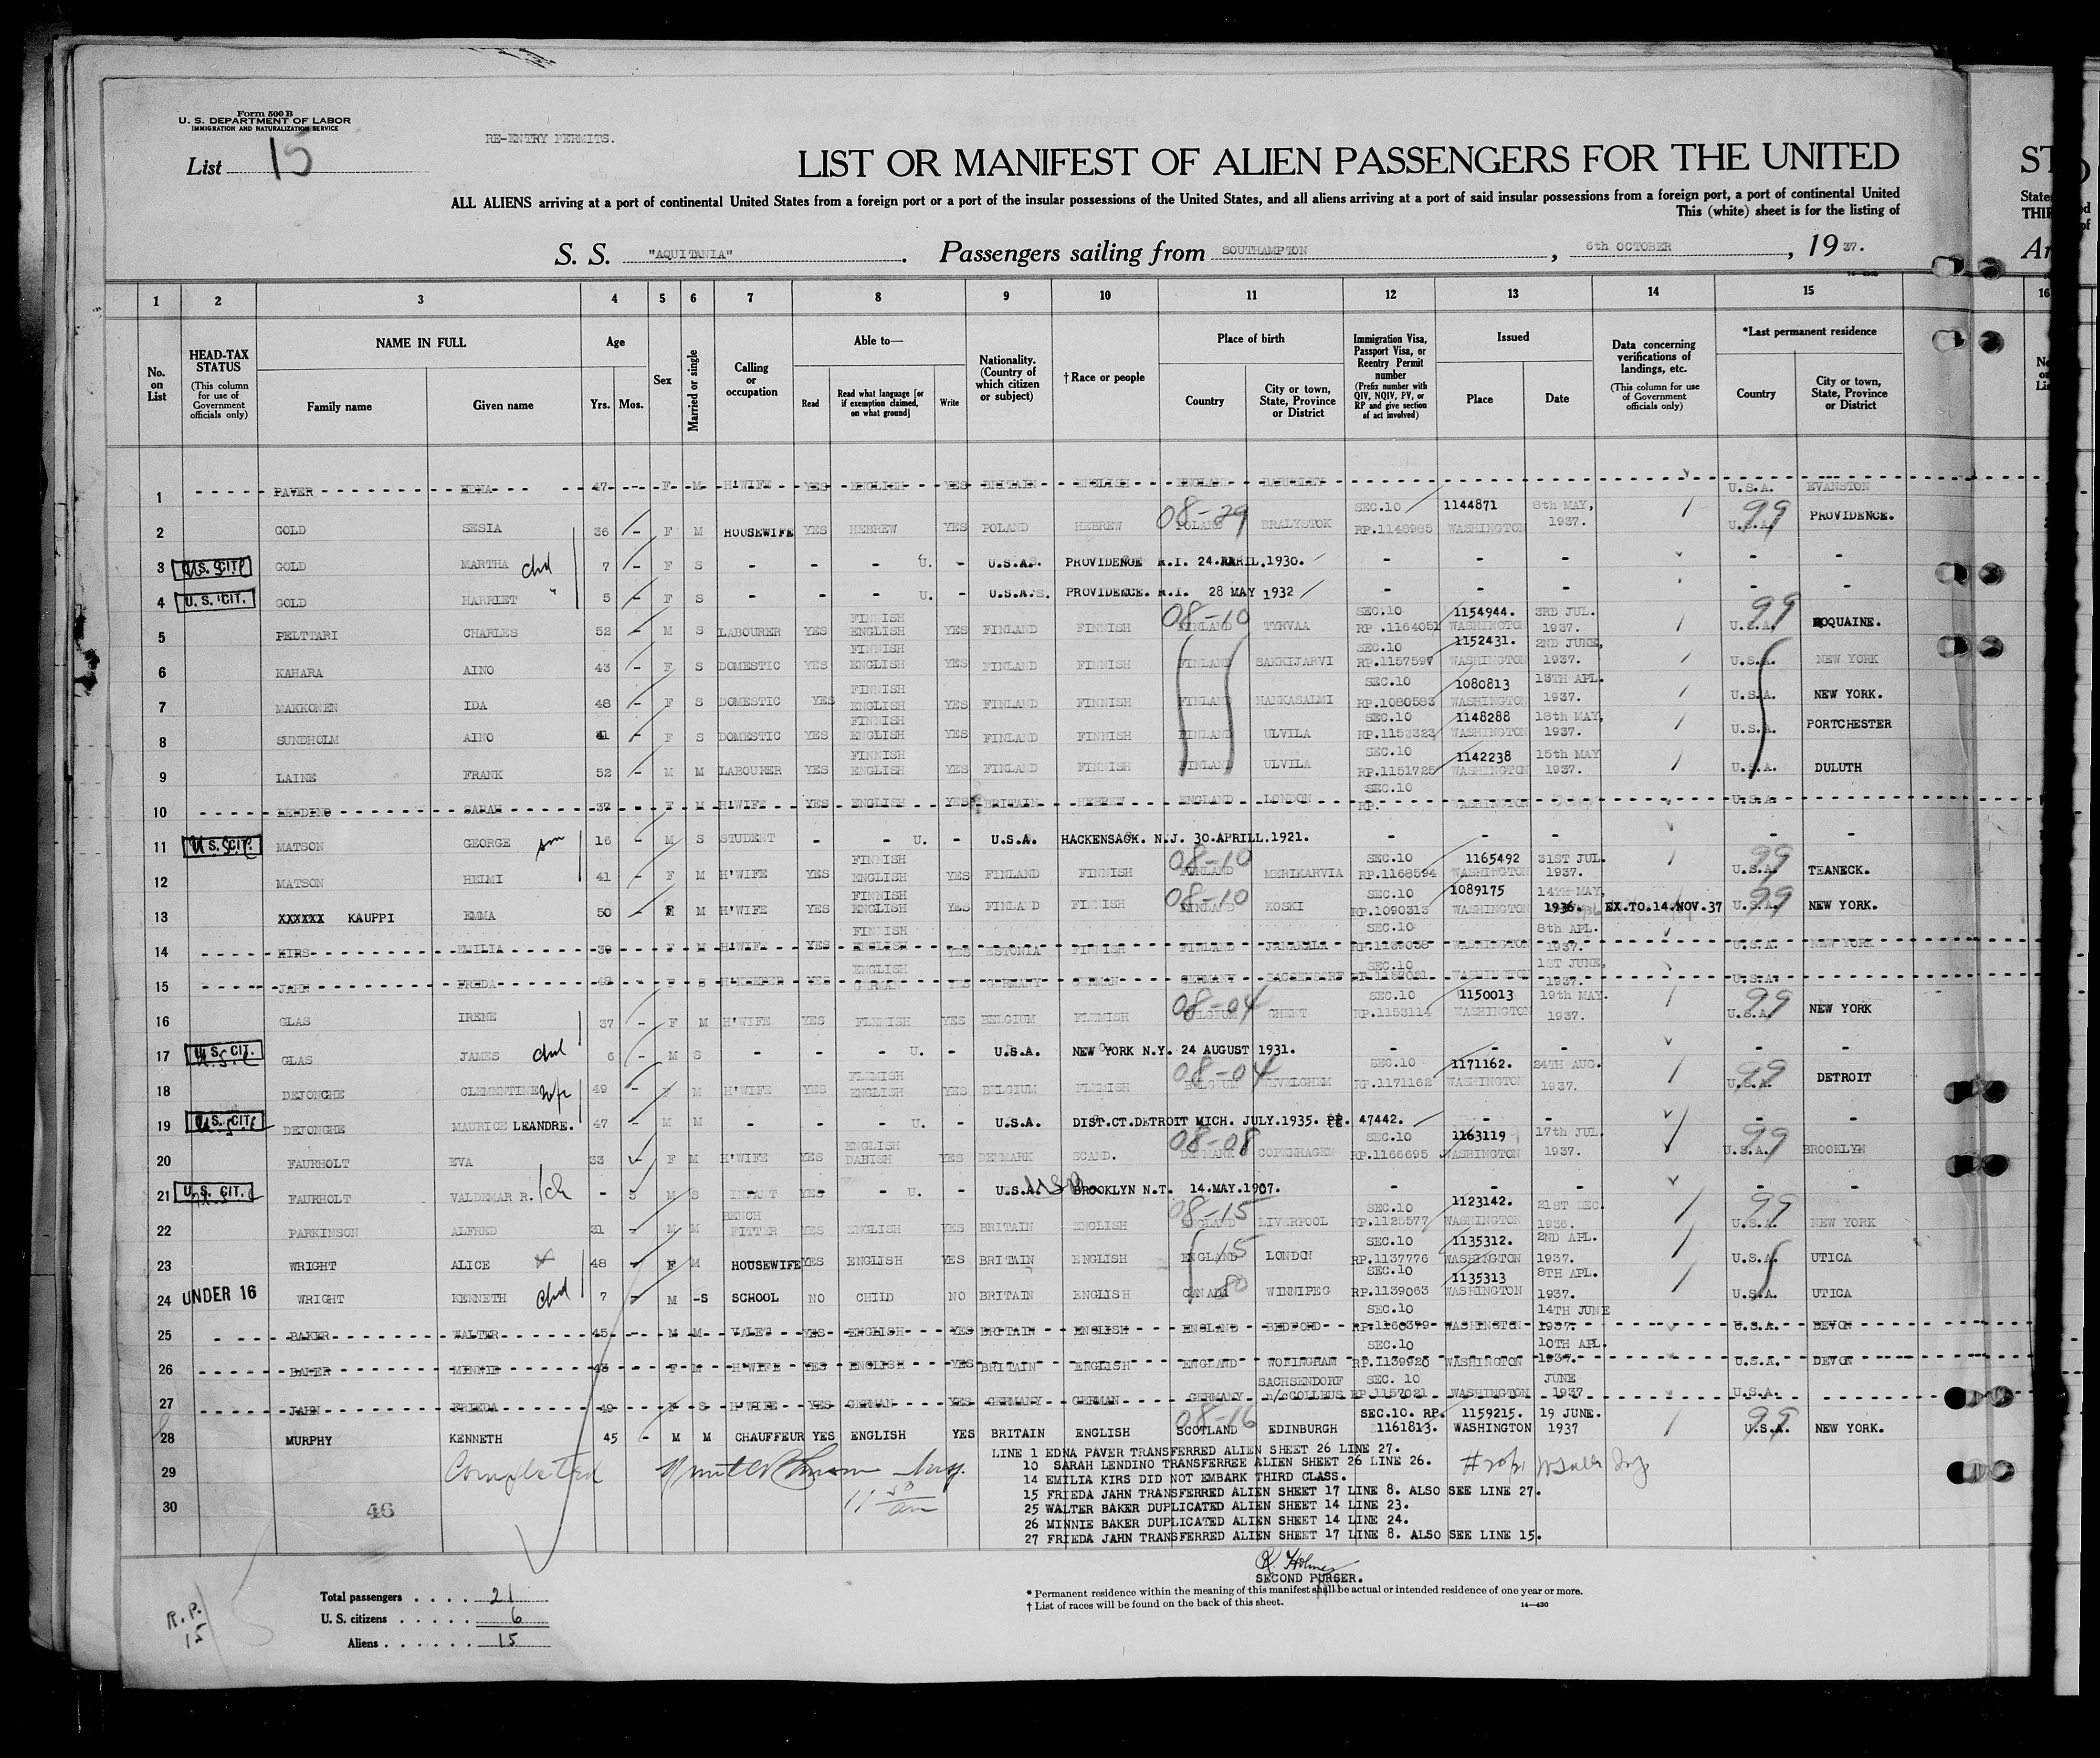 Form 500 B
U. S. DEPARTMENT OF LABOR
IMMIGRATION AND NATURALIZATION SERVICE
List 15
RE-ENTRY PERMITS.
LIST OR MANIFEST OF ALIEN PASSENGERS FOR THE UNITED
ALL ALIENS arriving at a port of continental United States from a foreign port or a port of the insular possessions of the United States, and all aliens arriving at a port of said insular possessions from a foreign port, a port of continental United
This (white) sheet is for the listing of
S. S. "AQUITANIA". Passengers sailing from SOUTHAMPTON, 6th OCTOBER, 1937.
1 2 3 4 5 6 7 8 9 10 11 12 13 14 15
No. on List
HEAD-TAX STATUS (This column for use of Government officials only)
NAME IN FULL
Family name
Given name
Age
Yrs. Mos.
Sex
Married or single
Calling or occupation
Able to—
Read
Read what language [or if exemption claimed, on what ground]
Write
Nationality. (Country of which citizen or subject)
† Race or people
Place of birth
Country
City or town, State, Province or District
Immigration Visa, Passport Visa, or Reentry Permit number (Prefix number with QIV, NQIV, PV, or RP and give section of act involved)
Issued
Place
Date
Data concerning verifications of landings, etc. (This column for use of Government officials only)
*Last permanent residence
Country
City or town, State, Province or District
1 PAVER EDNA 47 - F M H'WIFE YES ENGLISH YES BRITAIN ENGLISH ENGLAND U.S.A. EVANSTON
2 GOLD SESIA 36 - F M HOUSEWIFE YES HEBREW YES POLAND HEBREW 08-29 POLAND BRALYSTOK SEC.10 RP.1148985 1144871 WASHINGTON 8th MAY, 1937. 99 U.S.A. PROVIDENCE.
3 U.S. CIT. GOLD MARTHA chd 7 - F S - - - U. - U.S.A. PROVIDENCE R.I. 24.APRIL.1930. - - - - -
4 U.S. CIT. GOLD HARRIET " 5 - F S - - - U. - U.S.A. PROVIDENCE. R.I. 28 MAY 1932 - - - - -
5 PELTTARI CHARLES 52 - M S LABOURER YES FINNISH ENGLISH YES FINLAND FINNISH 08-10 FINLAND TYRVAA SEC.10 RP.1164051 1154944. WASHINGTON 3RD JUL. 1937. 99 U.S.A. ROQUAINE.
6 KAHARA AINO 43 - F S DOMESTIC YES FINNISH ENGLISH YES FINLAND FINNISH FINLAND SAKKIJARVI SEC.10 RP.1157597 1152431. WASHINGTON 2ND JUNE, 1937. U.S.A. NEW YORK
7 MAKKONEN IDA 48 - F S DOMESTIC YES FINNISH ENGLISH YES FINLAND FINNISH FINLAND HANKASALMI SEC.10 RP.1080583 1080813 WASHINGTON 13TH APL. 1937. U.S.A. NEW YORK.
8 SUNDHOLM AINO 41 - F S DOMESTIC YES FINNISH ENGLISH YES FINLAND FINNISH FINLAND ULVILA SEC.10 RP.1153323 1148288 WASHINGTON 18th MAY, 1937. U.S.A. PORTCHESTER
9 LAINE FRANK 52 - M M LABOURER YES FINNISH ENGLISH YES FINLAND FINNISH FINLAND ULVILA SEC.10 RP.1151725 1142238 WASHINGTON 15th MAY 1937. U.S.A. DULUTH
10 LENDINO SARAH 37 - F M H'WIFE YES ENGLISH YES BRITAIN HEBREW ENGLAND LONDON SEC.10 RP. WASHINGTON U.S.A.
11 U.S. CIT. MATSON GEORGE son 16 - M S STUDENT - - U. - U.S.A. HACKENSACK. N.J. 30.APRILL.1921. - - - - -
12 MATSON HELMI 41 - F M H'WIFE YES FINNISH ENGLISH YES FINLAND FINNISH 08-10 FINLAND MERIKARVIA SEC.10 RP.1168594 1165492 WASHINGTON 31ST JUL. 1937. 99 U.S.A. TEANECK.
13 XXXXXX KAUPPI EMMA 50 - F M H'WIFE YES FINNISH ENGLISH YES FINLAND FINNISH 08-10 FINLAND KOSKI SEC.10 RP.1090313 1089175 WASHINGTON 14TH MAY, 1936. EX.TO.14.NOV.37 99 U.S.A. NEW YORK.
14 KIRS EMILIA 39 - F M H'WIFE YES FINNISH ENGLISH YES ESTONIA FINNISH FINLAND JANAKALA SEC.10 WASHINGTON 8th APL. 1937. U.S.A. NEW YORK
15 JAHN FREDA 48 - F S H'KEEPER YES ENGLISH GERMAN YES GERMANY GERMAN GERMANY SACSENDORF SEC.10 RP.1157021 WASHINGTON 1ST JUNE, 1937. U.S.A.
16 GLAS IRENE 37 - F M H'WIFE YES FLEMISH YES BELGIUM FLEMISH 08-04 BELGIUM GHENT SEC.10 RP.1153114 1150013 WASHINGTON 19th MAY. 1937. 99 U.S.A. NEW YORK
17 U.S. CIT. GLAS JAMES chd 6 - M S - - - U. - U.S.A. NEW YORK N.Y. 24 AUGUST 1931. - - - - -
18 DEJONGHE CLEMENTINE wfe 49 - F M H'WIFE YES FLEMISH ENGLISH YES BELGIUM FLEMISH 08-04 BELGIUM WEVELGHEM SEC.10 RP.1171162 1171162. WASHINGTON 24TH AUG. 1937. 99 U.S.A. DETROIT
19 U.S. CIT. DEJONGHE MAURICE LEANDRE. 47 - M M - - - U. - U.S.A. DIST.CT.DETROIT MICH. JULY.1935. 47442. - - - - -
20 FAURHOLT EVA 33 - F M H'WIFE YES ENGLISH DANISH YES DENMARK SCAND. 08-08 DENMARK COPENHAGEN SEC.10 RP.1166695 1163119 WASHINGTON 17th JUL. 1937. 99 U.S.A. BROOKLYN
21 U.S. CIT. FAURHOLT VALDEMAR R. ch - 5 M S INFANT YES - U. - U.S.A. BROOKLYN N.T. 14.MAY.1907. - - - - -
22 PARKINSON ALFRED 31 - M M BENCH FITTER YES ENGLISH YES BRITAIN ENGLISH 08-15 ENGLAND LIVERPOOL SEC.10 RP.1125577 1123142. WASHINGTON 21ST DEC. 1936. 99 U.S.A. NEW YORK
23 WRIGHT ALICE 48 - F M HOUSEWIFE YES ENGLISH YES BRITAIN ENGLISH 15 ENGLAND LONDON SEC.10 RP.1137776 1135312. WASHINGTON 2ND APL. 1937. U.S.A. UTICA
24 UNDER 16 WRIGHT KENNETH chd 7 - M -S SCHOOL NO CHILD NO BRITAIN ENGLISH CANADA 80 WINNIPEG SEC.10 RP.1139063 1135313 WASHINGTON 8TH APL. 1937. U.S.A. UTICA
25 BAKER WALTER 45 - M M VALET YES ENGLISH YES BRITAIN ENGLISH ENGLAND BEDFORD SEC.10 RP.1160379 WASHINGTON 14TH JUNE 1937. U.S.A. DEVON
26 BAKER MINNIE 43 - F M H'WIFE YES ENGLISH YES BRITAIN ENGLISH ENGLAND WOKINGHAM SEC.10 RP.1139920 WASHINGTON 10TH APL. 1937. U.S.A. DEVON
27 JAHN FRIEDA 49 - F S H'WIFE YES GERMAN YES GERMANY GERMAN GERMANY SACHSENDORF n/cCOLLEUS SEC. 10 RP.1157021 WASHINGTON JUNE 1937 U.S.A.
28 MURPHY KENNETH 45 - M M CHAUFFEUR YES ENGLISH YES BRITAIN ENGLISH 08-16 SCOTLAND EDINBURGH SEC.10. RP. 1161813. 1159215. WASHINGTON 19 JUNE. 1937 99 U.S.A. NEW YORK.
29 Completed
30
46
LINE 1 EDNA PAVER TRANSFERRED ALIEN SHEET 26 LINE 27.
10 SARAH LENDINO TRANSFERREE ALIEN SHEET 26 LINE 26.
14 EMILIA KIRS DID NOT EMBARK THIRD CLASS.
15 FRIEDA JAHN TRANSFERRED ALIEN SHEET 17 LINE 8. ALSO SEE LINE 27.
25 WALTER BAKER DUPLICATED ALIEN SHEET 14 LINE 23.
26 MINNIE BAKER DUPLICATED ALIEN SHEET 14 LINE 24.
27 FRIEDA JAHN TRANSFERRED ALIEN SHEET 17 LINE 8. ALSO SEE LINE 15.
Holmes
SECOND PURSER.
Total passengers . . . . 21
U. S. citizens . . . . . 6
Aliens . . . . . . 15
R.P. 15
* Permanent residence within the meaning of this manifest shall be actual or intended residence of one year or more.
† List of races will be found on the back of this sheet.
14—430